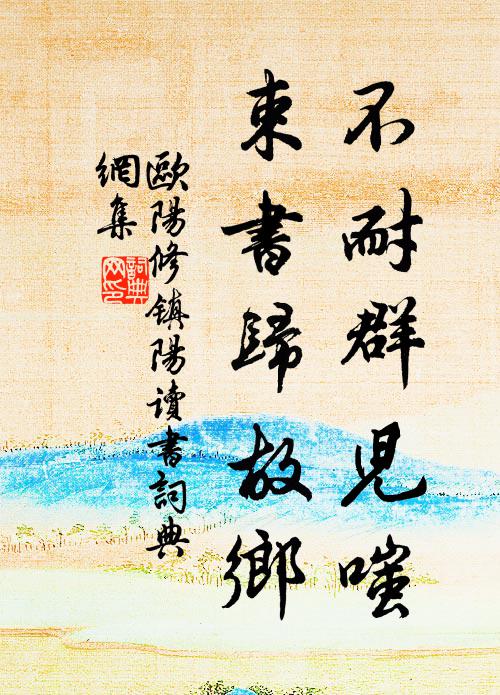 不耐群兒嗤
束書歸故鄉
歐陽修鎮陽讀書詞典
網集
詞典網印